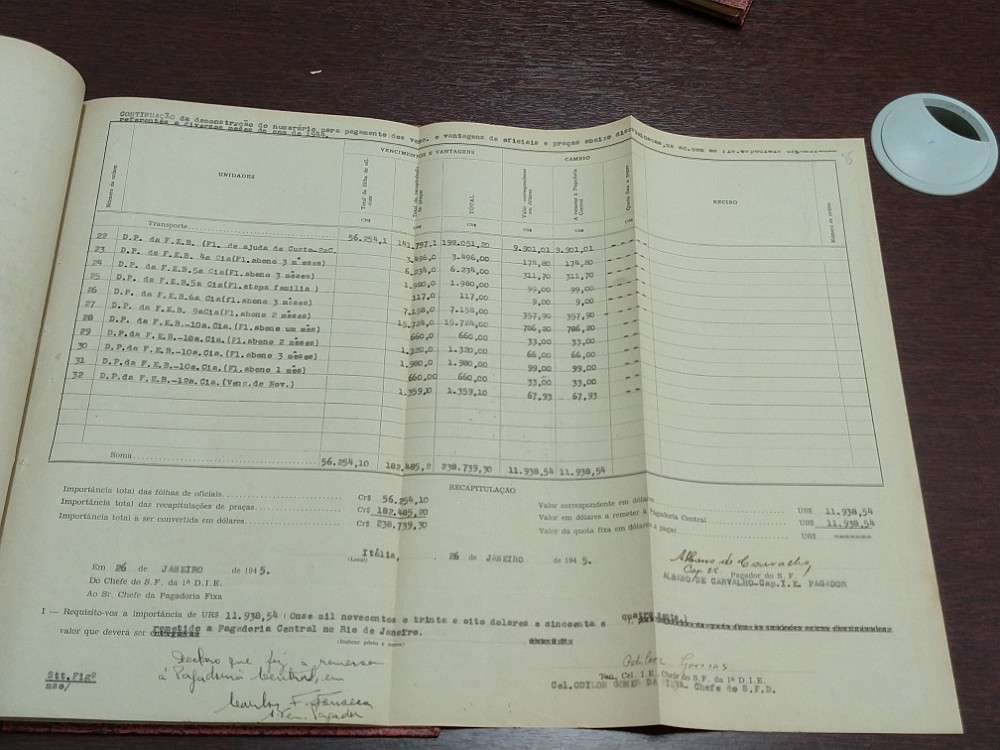 CONTINUAÇÃO da demonstração do numerário para pagamento dos venc. e vantagens de oficiais e praças abaixo
referentes a diversos meses do ano de 1944.
VENCIMENTOS E VANTAGENS CAMBIO
Número de ordem UNIDADES TOTAL Valor correspondente em dólares A remeter à Pagadoria Central RECIBO Número de ordem
CR$ CR$ CR$ US$ US$ US$
Transporte 56.254,1 141.797,1 198.051,20 9.901,01 9.901,01
22 D.P. da F.E.B. (Fl. de ajuda de Custo 3.496,0 3.496,00 174,80 174,80
23 D.P. da F.E.B. 4a Cia(Fl.abono 3 mêses) 6.234,0 6.234,00 311,70 311,70
24 D.P. da F.E.B.5a Cia(Fl.abono 3 mêses) 1.980,0 1.980,00 99,00 99,00
25 D.P. da F.E.B.5a Cia(Fl.etapa família ) 117,0 117,00 9,00 9,00
26 D.P. da F.E.B.6a Cia(Fl.abono 3 mêses) 7.158,0 7.158,00 357,90 357,90
27 D.P. da F.E.B. 9aCia(Fl.abono 2 mêses) 15.724,0 15.724,00 786,20 786,20
28 D.P. da F.E.B.-10a.Cia.(Fl.abono um mês) 660,0 660,00 33,00 33,00
29 D.P.da F.E.B.-10a.Cia.(Fl.abono 2 mêses) 1.320,0 1.320,00 66,00 66,00
30 D.P.da F.E.B.-10a.Cia.(Fl.abono 3 mêses) 1.980,0 1.980,00 99,00 99,00
31 D.P.da F.E.B.-10a.Cia.(Fl.abono 1 mês) 660,00 660,00 33,00 33,00
32 D.P.da F.E.B.-12a.Cia.(Venc.de Nov.) 1.359,10 1.359,10 67,93 67,93
Soma 56.254,10 182.485,2 238.739,30 11.938,54 11.938,54
RECAPITULAÇÃO
Importância total das fôlhas de oficiais Cr$ 56.254,10
Importância total das recapitulações de praças Cr$ 182.485,20
Importância total a ser convertida em dólares Cr$ 238.739,30
Valor correspondente em dólares US$ 11.938,54
Valor em dólares a remeter à Pagadoria Central US$ 11.938,54
Valor da quota fixa em dólares a pagar US$
Itália, 26 de JANEIRO de 1945.
(Local)
Em 26 de JANEIRO de 1945.
Do Chefe do S.F. da 1ª D.I.E.
Ao Sr. Chefe da Pagadoria Fixa
Albano de Carvalho
Cap. I.E. Pagador do S.F.
ALBANO DE CARVALHO-Cap.I.E. PAGADOR
I — Requisito-vos a importância de UR$ 11.938,54 (Onze mil novecentos e trinta e oito dolares e cincoenta e quatro
valor que deverá ser remetido a Pagadoria Central no Rio de Janeiro.
Declaro que fiz a remessa
á Pagadoria Central, em
Carlos F. Fonseca
Pagador
Stt.Figº
nse/
Odilon Gomes
Ten. Cel. I.E. Chefe do S.F. da 1ª D.I.E.
Cel.ODILON GOMES DA SILVA. Chefe do S.F.D.